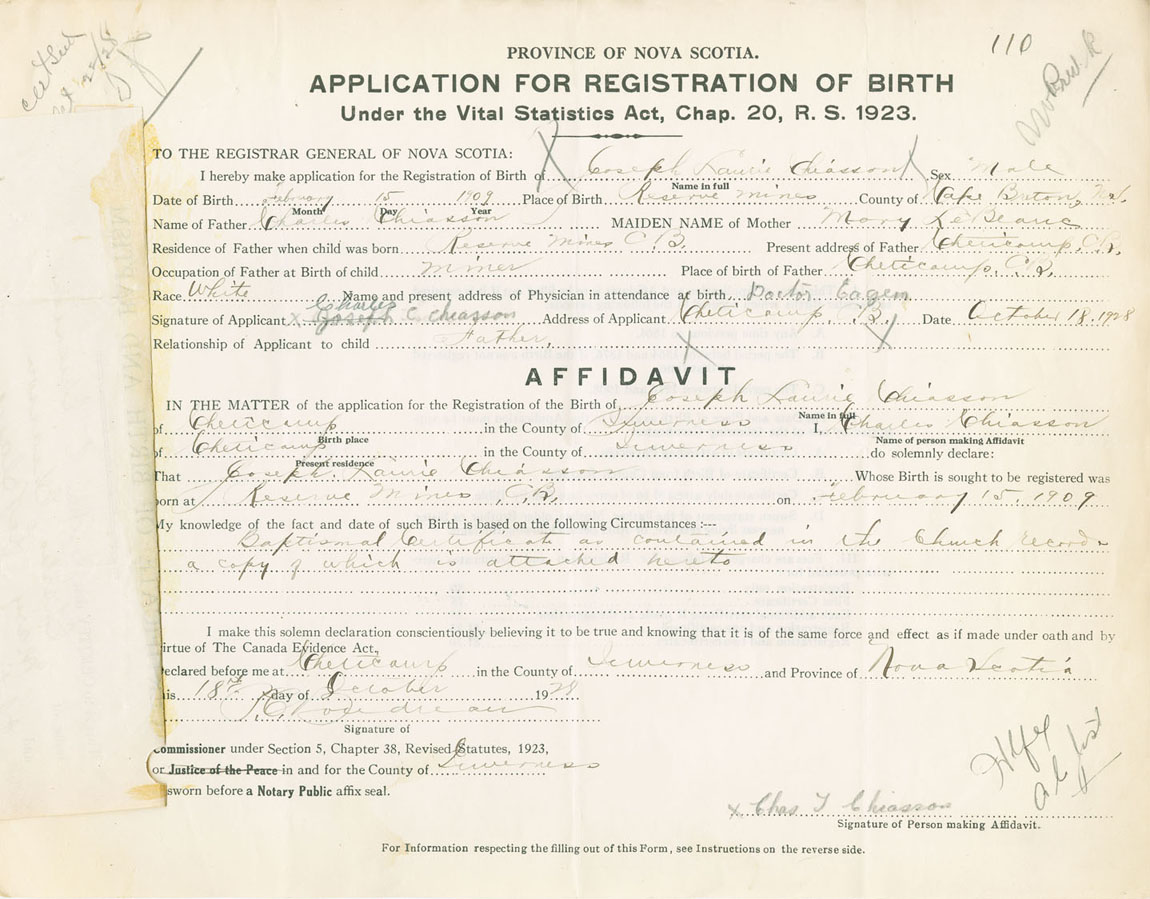 110
PROVINCE OF NOVA SCOTIA.
APPLICATION FOR REGISTRATION OF BIRTH
Under the Vital Statistics Act, Chap. 20, R. S. 1923.
TO THE REGISTRAR GENERAL OF NOVA SCOTIA:
I hereby make application for the Registration of Birth of Joseph Laurie Chiasson Sex Male
Name in full
Date of Birth February 15 1909 Place of Birth Reserve Mines County of Cape Breton, N.S.
Month Day Year
Name of Father Charles Chiasson MAIDEN NAME of Mother Mary LeBlanc
Residence of Father when child was born Reserve Mines C.B. Present address of Father Cheticamp, C.B.
Occupation of Father at Birth of child Miner Place of birth of Father Cheticamp, C.B.
Race White Name and present address of Physician in attendance at birth Doctor
Charles
Signature of Applicant x Joseph C. Chiasson Address of Applicant Cheticamp, C.B. Date October 18, 1928
Relationship of Applicant to child Father.
AFFIDAVIT
IN THE MATTER of the application for the Registration of the Birth of Joseph Laurie Chiasson
Name in full
of Cheticamp in the County of Inverness I, Charles Chiasson
Birth place Name of person making Affidavit
of Cheticamp in the County of Inverness do solemnly declare:
Present residence
That Joseph Laurie Chiasson Whose Birth is sought to be registered was
born at Reserve Mines, C.B. on February 15, 1909
My knowledge of the fact and date of such Birth is based on the following Circumstances :---
Baptismal Certificate as contained in the Church records
a copy of which is attached hereto
I make this solemn declaration conscientiously believing it to be true and knowing that it is of the same force and effect as if made under oath and by
irtue of The Canada Evidence Act,
eclared before me at Cheticamp in the County of Inverness and Province of Nova Scotia
is 18th day of October 1928
Signature of
Commissioner under Section 5, Chapter 38, Revised Statutes, 1923,
or Justice of the Peace in and for the County of Inverness
sworn before a Notary Public affix seal.
x Chas T Chiasson
Signature of Person making Affidavit.
For Information respecting the filling out of this Form, see Instructions on the reverse side.